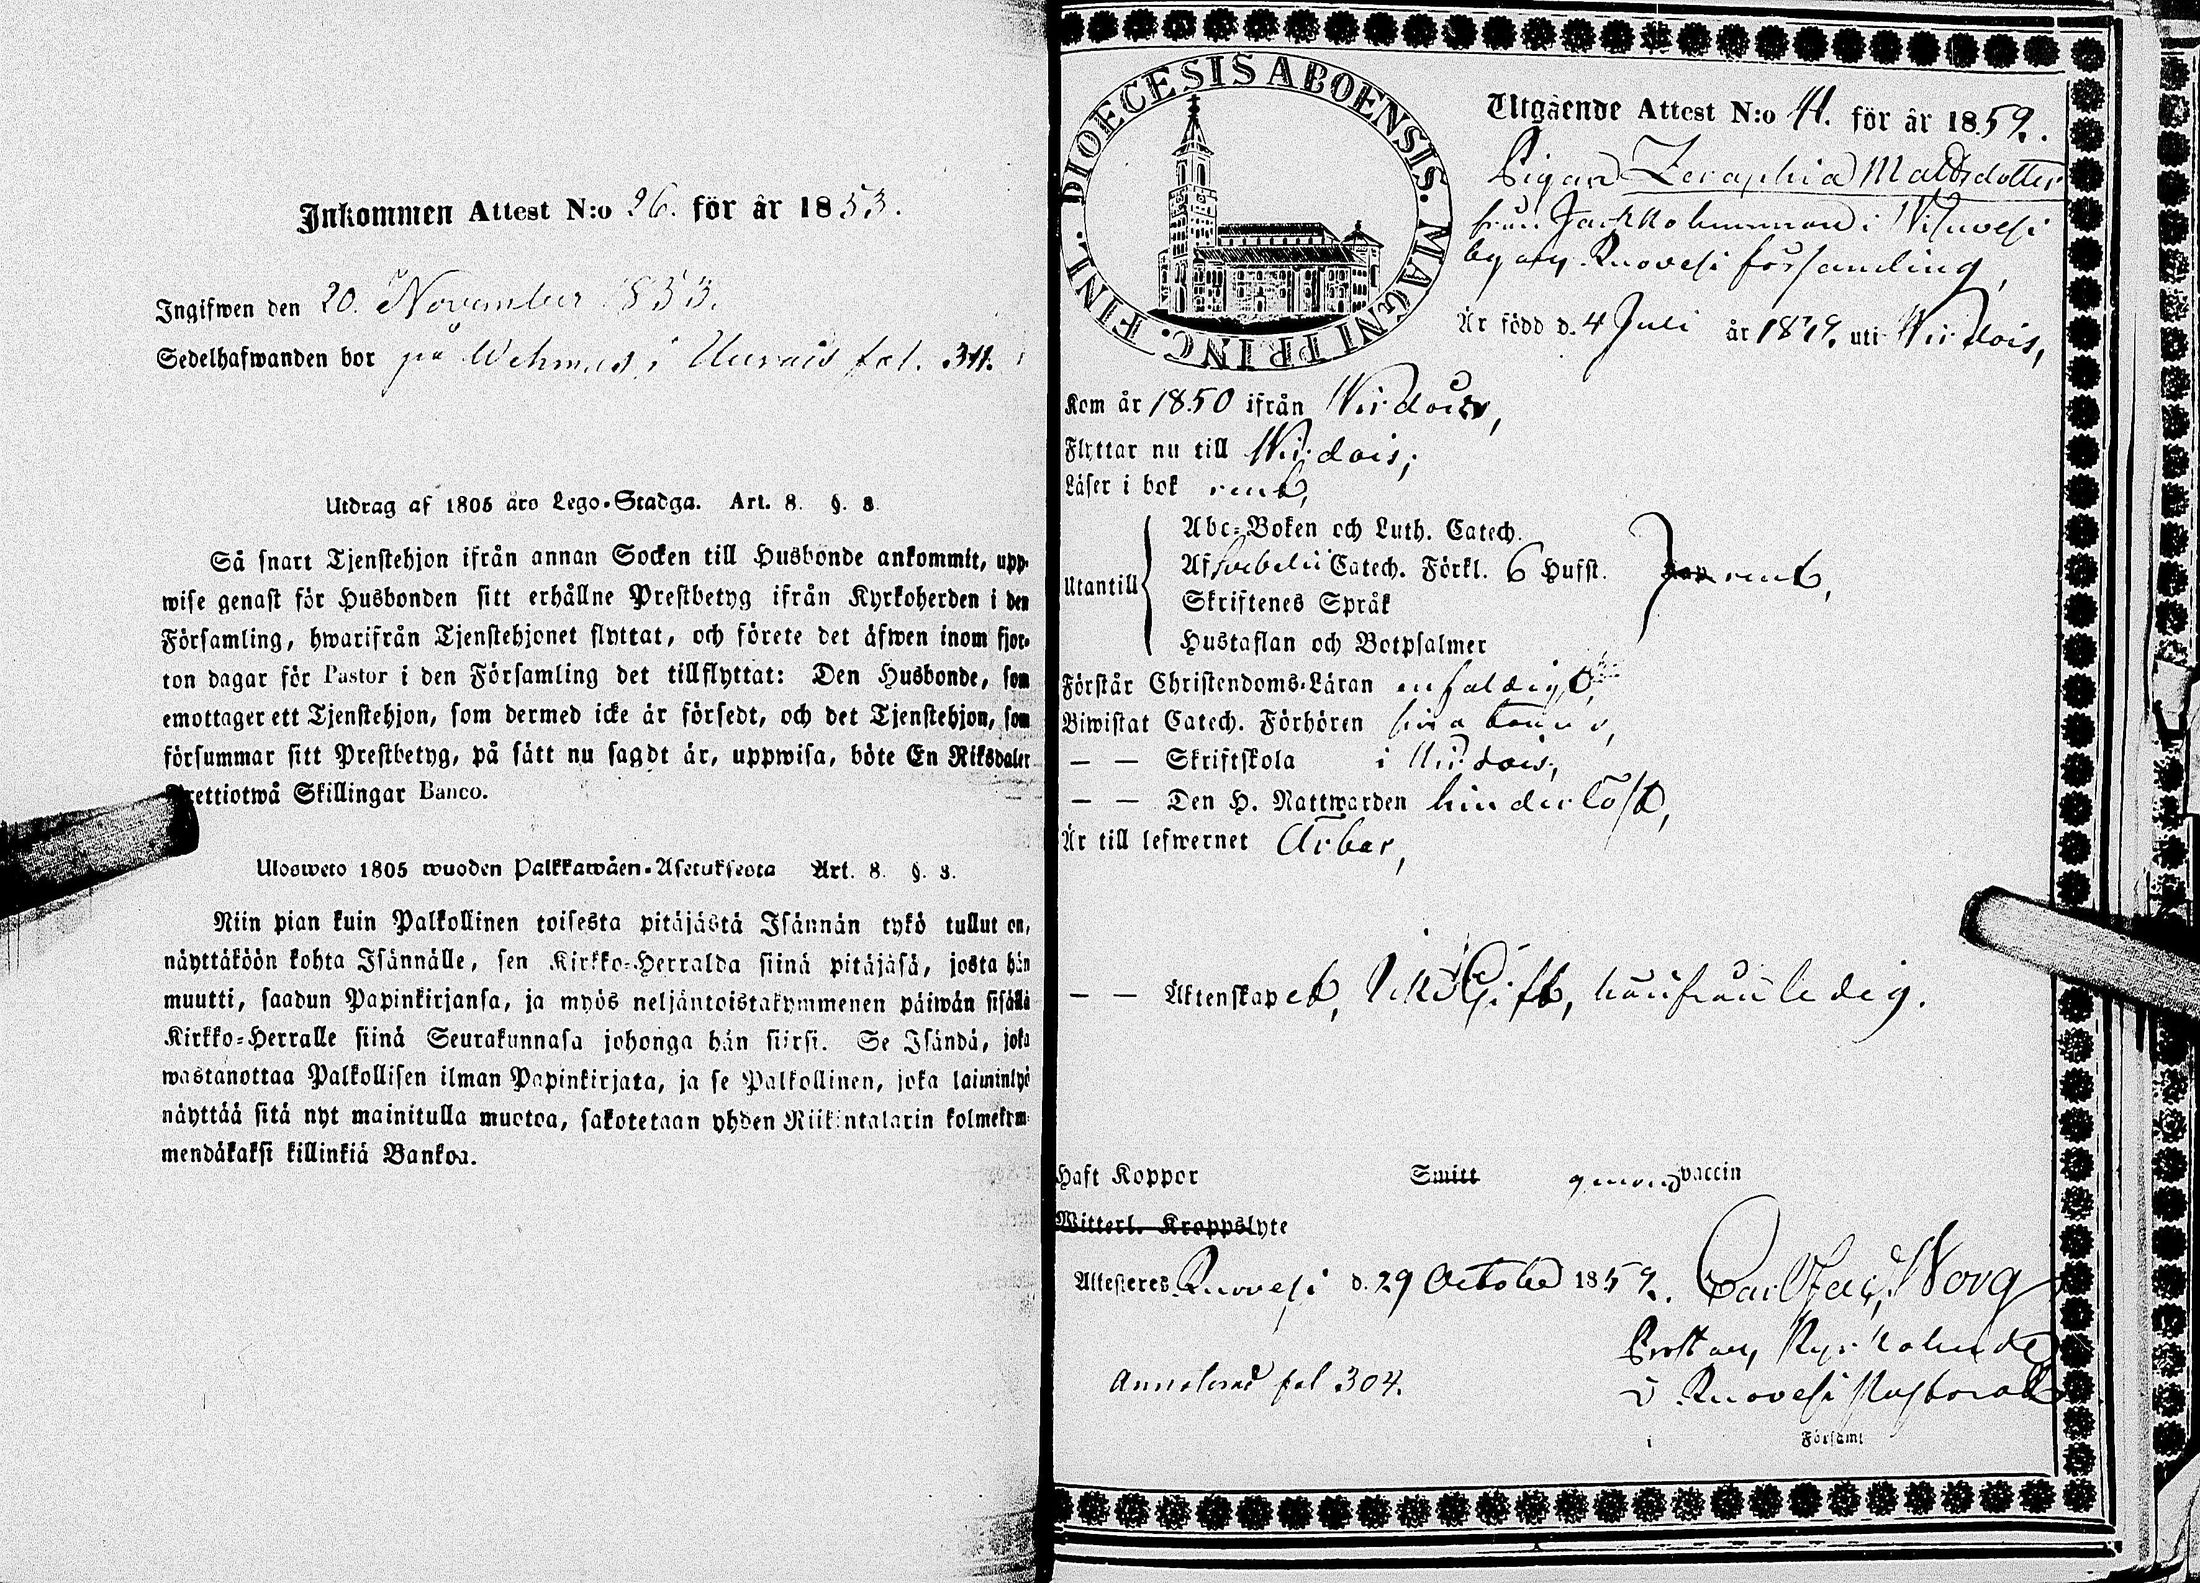 Inkommen Attest N:o 26. för år 1853.
Ingifwen den 20. November 1853.
Sedelhafwanden bor på Wehmas i fol. 311.
Utdrag af 1805 års Lego-Stadga. Art. 8. §. 3.
Så snart Tjenstehjon ifrån annan Socken till Husbonde ankommit, upp-
wise genast för Husbonden sitt erhållne Prestbetyg ifrån Kyrkoherden i den
Församling, hwarifrån Tjenstehjonet flyttat, och förete det äfwen inom fjor-
ton dagar för Pastor i den Församling det tillflyttat: Den Husbonde, som
emottager ett Tjenstehjon, som dermed icke är försedt, och det Tjenstehjon, som
försummar sitt Prestbetyg, på sätt nu sagdt är, uppwisa, böte En Riksdaler
Trettiotwå Skillingar Banco.
Ulosweto 1805 wuoden Palkkawäen-Asetuksesta Art. 8. §. 3.
Niin pian kuin Palkollinen toisesta pitäjästä Isännän tykö tullut on,
näyttäköön kohta Isännälle, sen Kirkko-Herralda siinä pitäjäsä, josta hän
muutti, saadun Papinkirjansa, ja myös neljäntoistakymmenen päiwän sisällä
Kirkko-Herralle siinä Seurakunnasa johonga hän siirsi. Se Isändä, joka
wastanottaa Palkollisen ilman Papinkirjata, ja se Palkollinen, joka laiminlyö
näyttää sitä nyt mainitulla muotoa, sakotetaan yhden Riikintalarin kolmekym-
mendäkaksi killinkiä Bankoa.
DIOECESIS ABOENSIS. MAGNI PRINC. FINL.
Utgående Attest N:o 41. för år 1852.
Pigan Zeraphia Mattsdotter
från i Wisuvesi
by och Ruovesi församling,
Är född d. 4 Juli år uti Wirdois,
Kom år 1850 ifrån Wirdois,
Flyttar nu till Wirdois,
Läser i bok rent,
Utantill
Abc-Boken och Luth. Catech.
Af Svebelii Catech. Förkl. 6 Hufst. rent,
Skriftenes Språk
Hustaflan och Botpsalmer
Förstår Christendoms-Läran enfaldigt,
Biwistat Catech. Förhören
— — Skriftskola i Wirdois,
— — Den H. Nattwarden hinderlöst,
Är till lefwernet Ärbar,
— — Äktenskapet, icke Gift, härifrån ledig.
Haft Koppor Smitt genom vaccin
Witterl. Kroppslyte
Attesteras Ruovesi d. 29 October 1852. Carl Norg
Prost och Kyrkoherde
i Ruovesi Pastorat
Annoterad fol 304.
i Församl